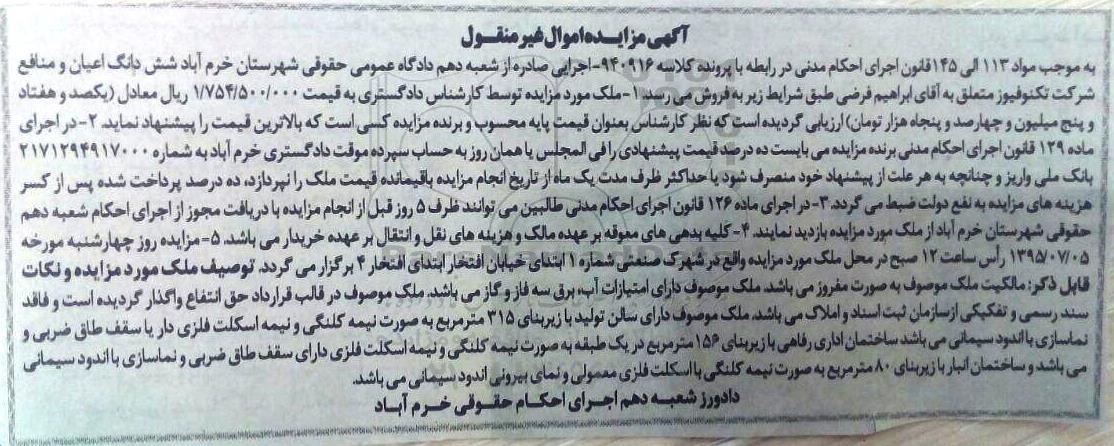 آگهی مزایده اموال غیر منقول
به موجب مواد ۱۱۳ الی ۱۴۵ قانون اجرای احکام مدنی در رابطه با پرونده کلاسه ۹۴۰۹۱۶-اجرایی صادره از شعبه دهم دادگاه عمومی حقوقی شهرستان خرم آباد شش دانگ اعیان و منافع
شرکت تکنوفیوز متعلق به آقای ابراهیم فرضی طبق شرایط زیر به فروش می رسد. ۱-ملک مورد مزایده توسط کارشناس دادگستری به قیمت ۱/۷۵۴/۵۰۰/۰۰۰ ریال معادل (یکصد و هفتاد
و پنج میلیون و چهارصد و پنجاه هزار تومان) ارزیابی گردیده است که نظر کارشناس بعنوان قیمت پایه محسوب و برنده مزایده کسی است که بالاترین قیمت را پیشنهاد نماید. ۲-در اجرای
ماده ۱۲۹ قانون اجرای احکام مدنی برنده مزایده می بایست ده درصد قیمت پیشنهادی را فی المجلس یا همان روز به حساب سپرده موقت دادگستری خرم آباد به شماره ۲۱۷۱۲۹۴۹۱۷۰۰۰
بانک ملی واریز و چنانچه به هر علت از پیشنهاد خود منصرف شود یا حداکثر ظرف مدت یک ماه از تاریخ انجام مزایده باقیمانده قیمت ملک را نپردازد، ده درصد پرداخت شده پس از کسر
هزینه های مزایده به نفع دولت ضبط می گردد. ۳-در اجرای ماده ۱۲۶ قانون اجرای احکام مدنی طالبین می توانند ظرف ۵ روز قبل از انجام مزایده با دریافت مجوز از اجرای احکام شعبه دهم
حقوقی شهرستان خرم آباد از ملک مورد مزایده بازدید نمایند. ۴-کلیه بدهی های معوقه بر عهده مالک و هزینه های نقل و انتقال بر عهده خریدار می باشد. ۵-مزایده روز چهارشنبه مورخه
۱۳۹۵/۰۷/۰۵ رأس ساعت ۱۲ صبح در محل ملک مورد مزایده واقع در شهرک صنعتی شماره ۱ ابتدای خیابان افتخار ابتدای افتخار ۴ برگزار می گردد. توصیف ملک مورد مزایده و نکات
قابل ذکر: مالکیت ملک موصوف به صورت مفروز می باشد. ملک موصوف دارای امتیازات آب، برق سه فاز و گاز می باشد. ملک موصوف در قالب قرارداد حق انتفاع واگذار گردیده است و فاقد
سند رسمی و تفکیکی از سازمان ثبت اسناد و املاک می باشد. ملک موصوف دارای سالن تولید با زیربنای ۳۱۵ مترمربع به صورت نیمه کلنگی و نیمه اسکلت فلزی دار با سقف طاق ضربی و
نماسازی با اندود سیمانی می باشد ساختمان اداری رفاهی با زیربنای ۱۵۶ مترمربع در یک طبقه به صورت نیمه کلنگی و نیمه اسکلت فلزی دارای سقف طاق ضربی و نماسازی با اندود سیمانی
می باشد و ساختمان انبار با زیربنای ۸۰ مترمربع به صورت نیمه کلنگی با اسکلت فلزی معمولی و نمای بیرونی اندود سیمانی می باشد.
دادورز شعبه دهم اجرای احکام حقوقی خرم آباد